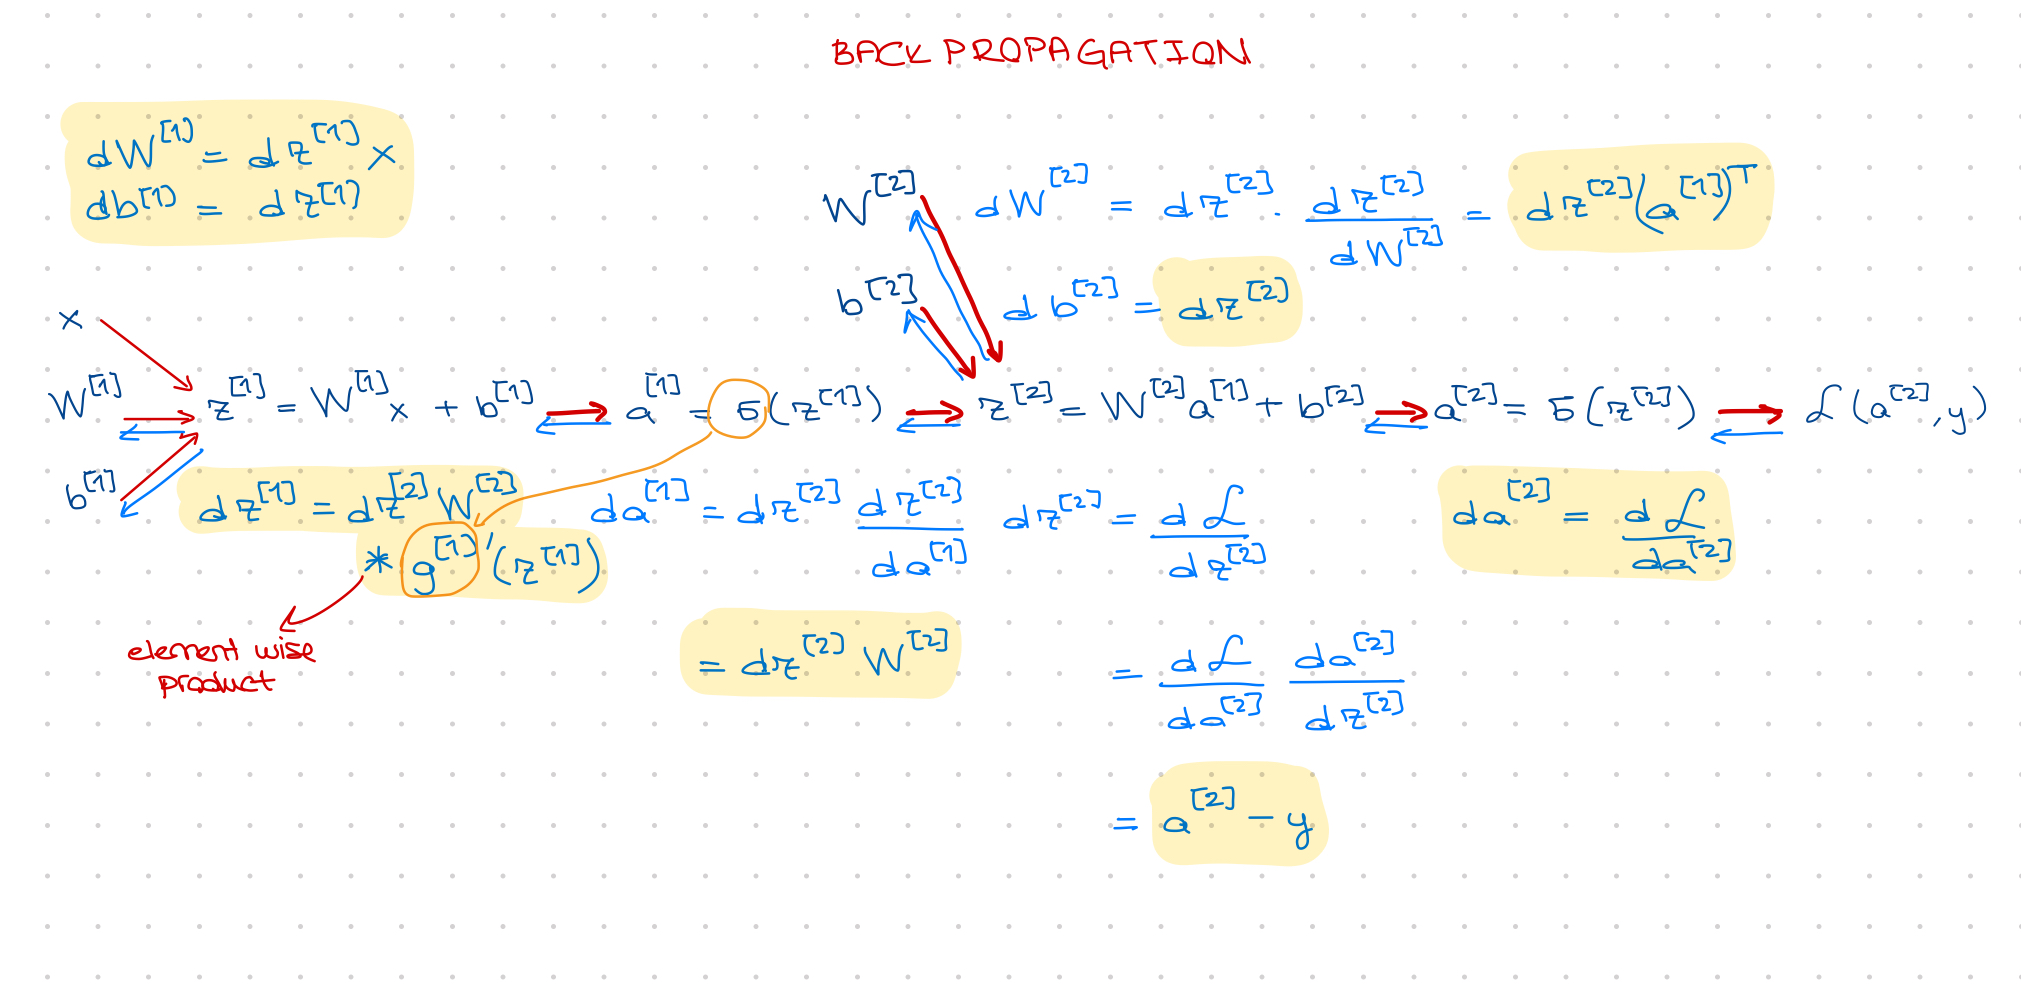 BACK PROPAGATION
dW^[1] = dz^[1] x
db^[1] = dz^[1]
W^[2]
dW^[2] = dz^[2] . dz^[2]/dW^[2] = dz^[2] (a^[1])^T
b^[2]
db^[2] = dz^[2]
x
W^[1]
z^[1] = W^[1] x + b^[1]
a^[1] = σ(z^[1])
z^[2] = W^[2] a^[1] + b^[2]
a^[2] = σ(z^[2])
ℒ(a^[2], y)
b^[1]
dz^[1] = dz^[2] W^[2]
* g^[1]'(z^[1])
element wise
product
da^[1] = dz^[2] dz^[2]/da^[1]
= dz^[2] W^[2]
dz^[2] = dℒ/dz^[2]
= dℒ/da^[2] da^[2]/dz^[2]
= a^[2] - y
da^[2] = dℒ/da^[2]